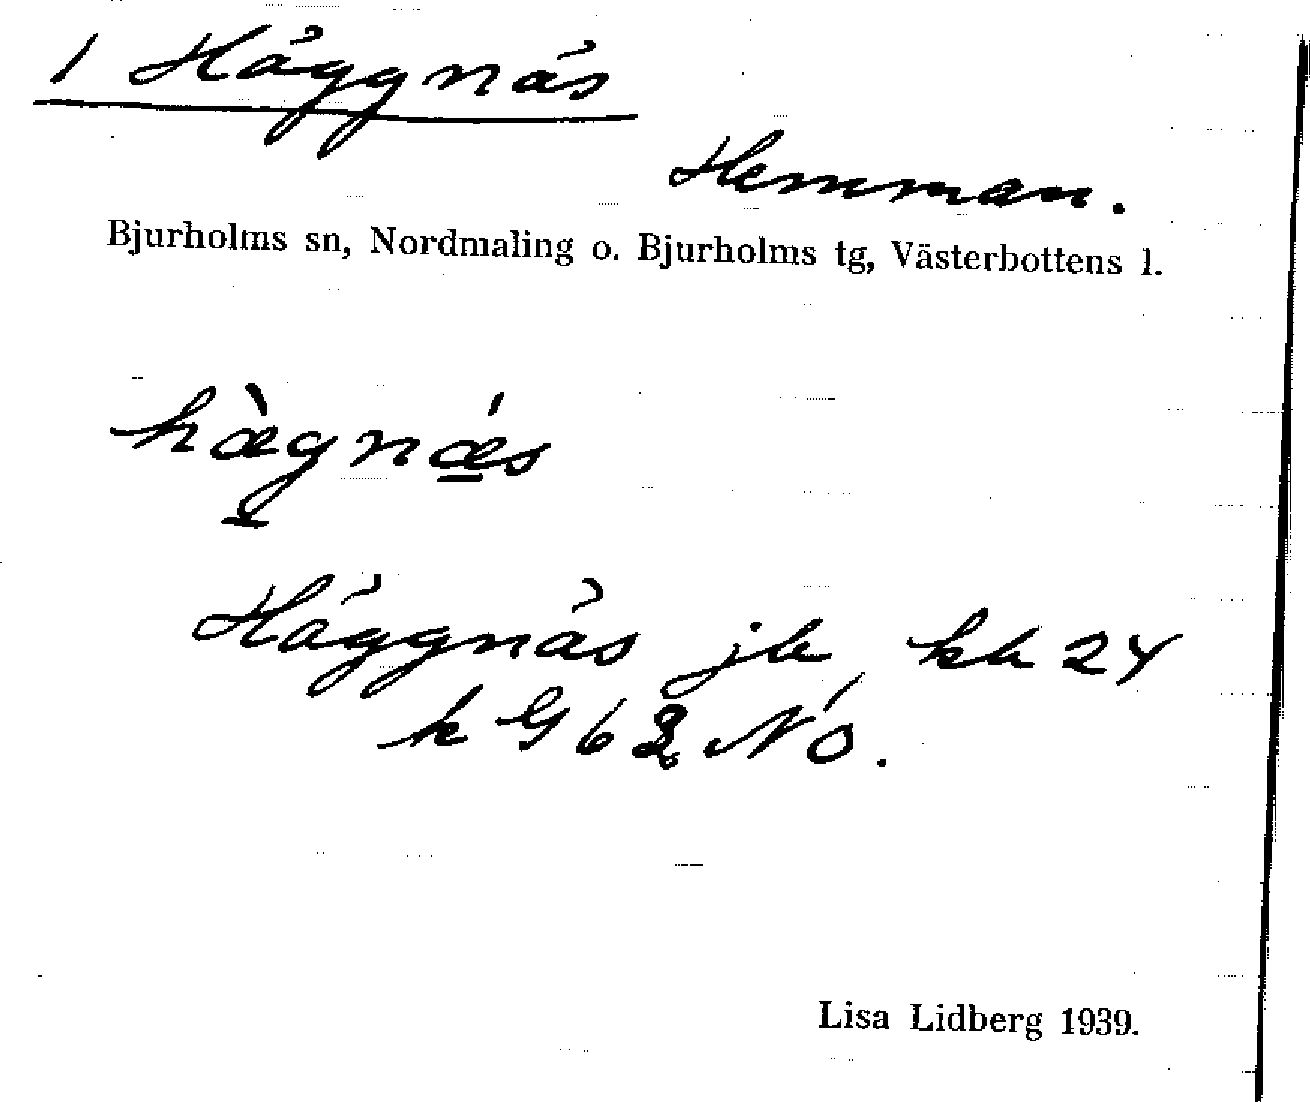 1 Häggnäs
Hemman.
Bjurholms sn, Nordmaling o. Bjurholms tg, Västerbottens l.
hæ̀gnǽs
Häggnäs jb kb 24
k G 6 NÖ.
Lisa Lidberg 1939.